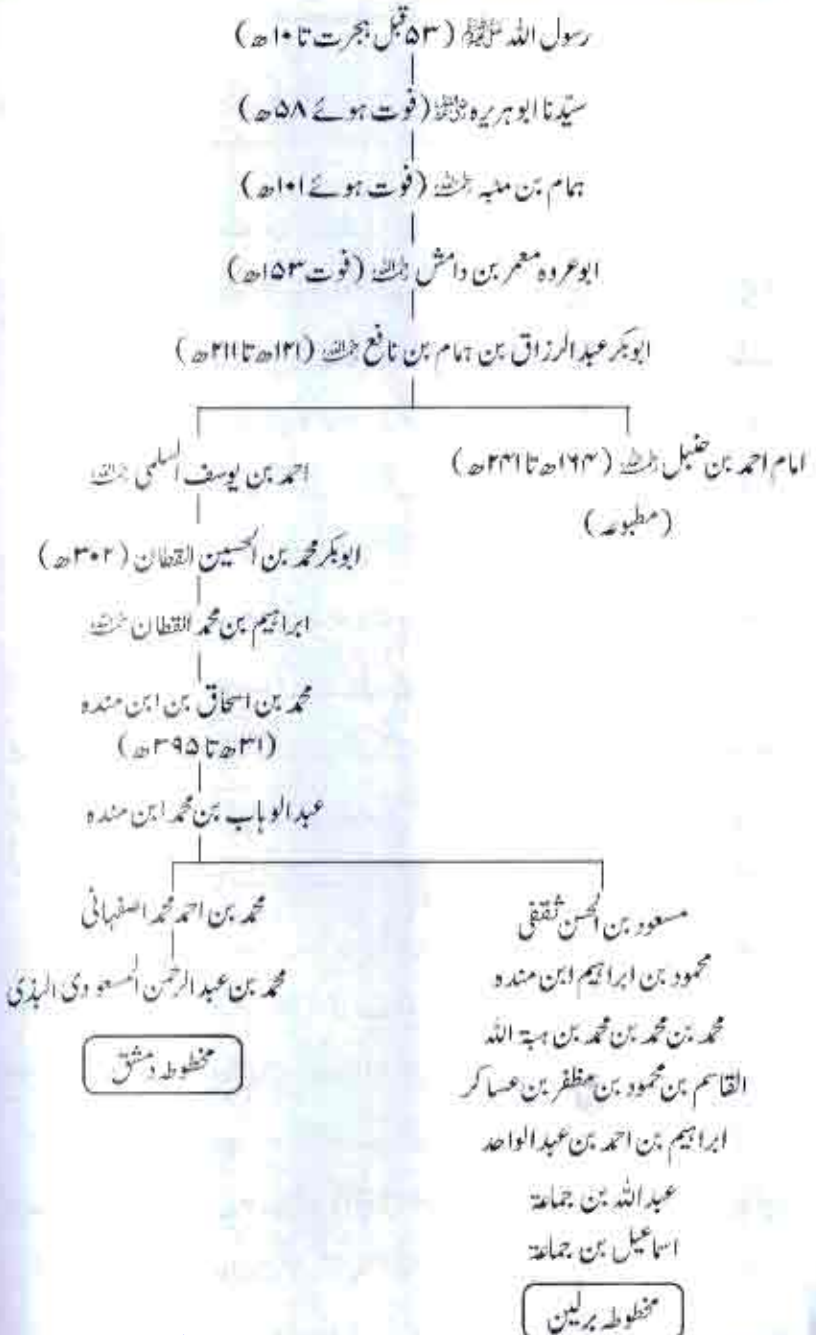 رسول اللہ ﷺ (۵۳ قبل ہجرت تا ۱۰ھ)
سیّدنا ابو ہریرہ رضی اللہ عنہ (فوت ہوئے ۵۸ھ)
ہمام بن منبہ رحمہ اللہ (فوت ہوئے ۱۰۱ھ)
ابو عروہ معمر بن دامش رحمہ اللہ (فوت ۱۵۳ھ)
ابوبکر عبدالرزاق بن ہمام بن نافع رحمہ اللہ (۱۲۱ھ تا ۲۱۱ھ)
امام احمد بن حنبل رحمہ اللہ (۱۶۴ھ تا ۲۴۱ھ)
(مطبوعہ)
احمد بن یوسف السلمی رحمہ اللہ
ابوبکر محمد بن الحسین القطان (۳۰۲ھ)
ابراہیم بن محمد القطان رحمہ اللہ
محمد بن اسحاق بن ابن مندہ
(۳۱ھ تا ۳۹۵ھ)
عبدالوہاب بن محمد ابن مندہ
مسعود بن الحسن ثقفی
محمود بن ابراہیم ابن مندہ
محمد بن محمد بن محمد بن ہبۃ اللہ
القاسم بن محمود بن مظفر بن عساکر
ابراہیم بن احمد بن عبدالواحد
عبداللہ بن جماعۃ
اسماعیل بن جماعۃ
مخطوطہ برلین
محمد بن احمد محمد اصفہانی
محمد بن عبدالرحمن المسعودی البذی
مخطوطہ دمشق